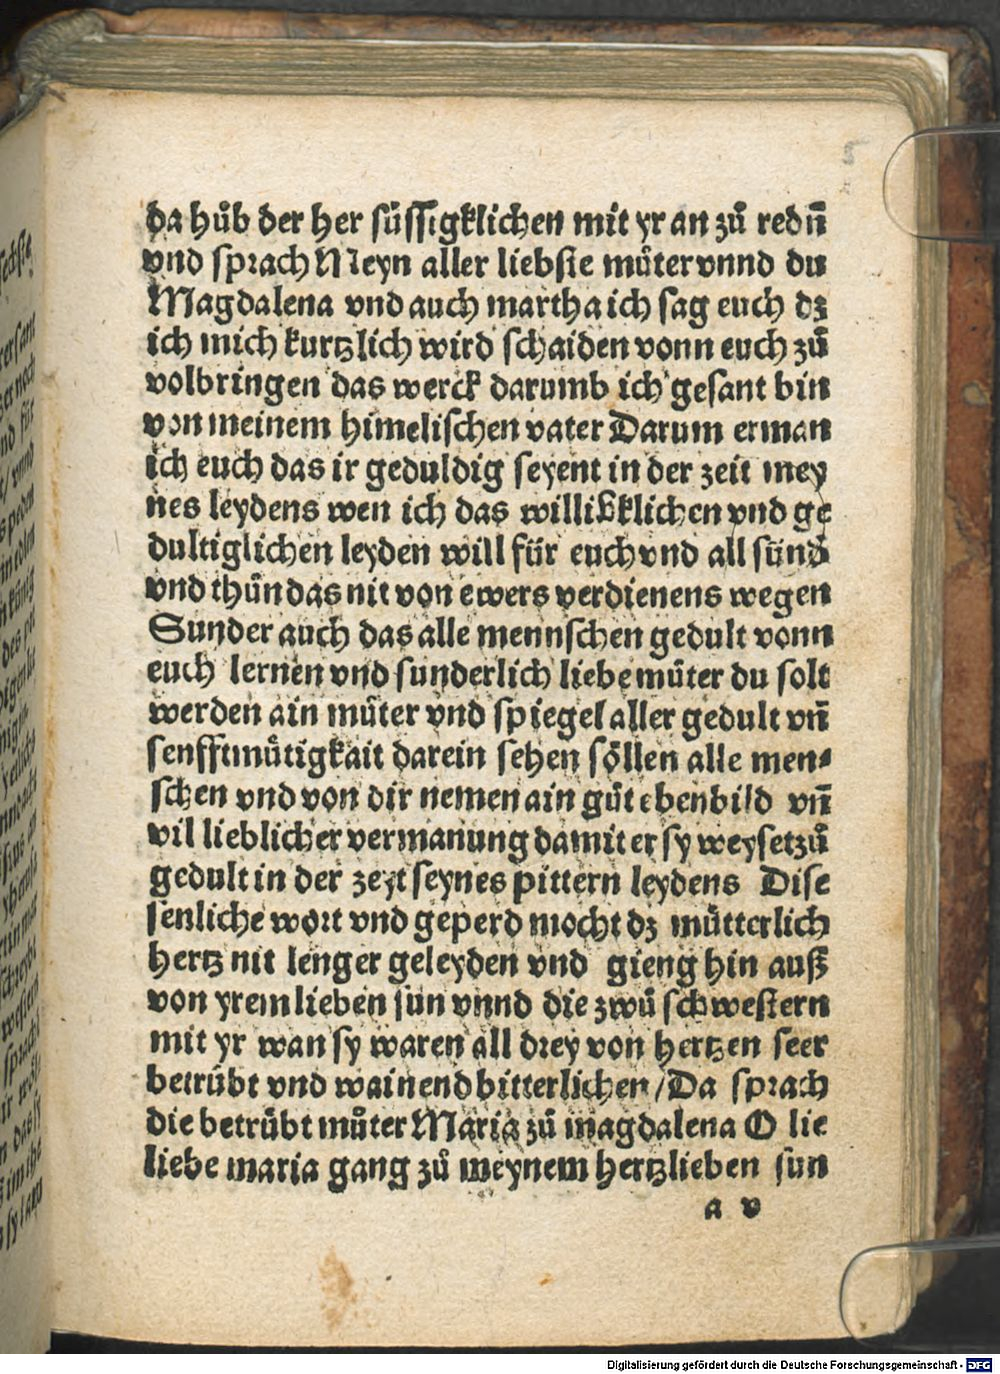 5
da hůb der her süssigklichen mit yr an zů redn̄
vnd sprach Neyn aller liebste můter vnnd du
Magdalena vnd auch martha ich sag euch dz
ich mich kurtzlich wird schaiden vonn euch zů
volbringen das werck darumb ich gesant bin
von meinem himelischen vater Darum erman
ich euch das ir geduldig seyent in der zeit mey
nes leydens wen ich das willigklichen vnd ge
dultiglichen leyden will für euch vnd all sünd
vnd thůn das nit von ewers verdienens wegen
Sunder auch das alle mennschen gedult vonn
euch lernen vnd sunderlich liebe můter du solt
werden ain můter vnd spiegel aller gedult vn̄
senfftmůtigkait darein sehen söllen alle men⸗
schen vnd von dir nemen ain gůt ebenbild vn̄
vil lieblicher vermanung damit er sy weyset zů
gedult in der zeyt seynes pittern leydens Dise
senliche wort vnd geperd mocht dz můtterlich
hertz nit lenger geleyden vnd gieng hin auß
von yrem lieben sun vnnd die zwů schwestern
mit yr wan sy waren all drey von hertzen seer
betrübt vnd wainend bitterlichen / Da sprach
die betrübt můter Maria zů magdalena O lie
liebe maria gang zů meynem hertzlieben sun
a v
Digitalisierung gefördert durch die Deutsche Forschungsgemeinschaft - DFG